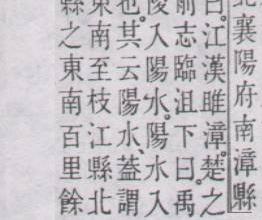 北襄陽府南漳縣
曰江漢雎漳楚之
前志臨沮下曰禹
陵入陽水陽水入
也其云陽水蓋謂
東南至枝江縣北
縣之東南百里餘